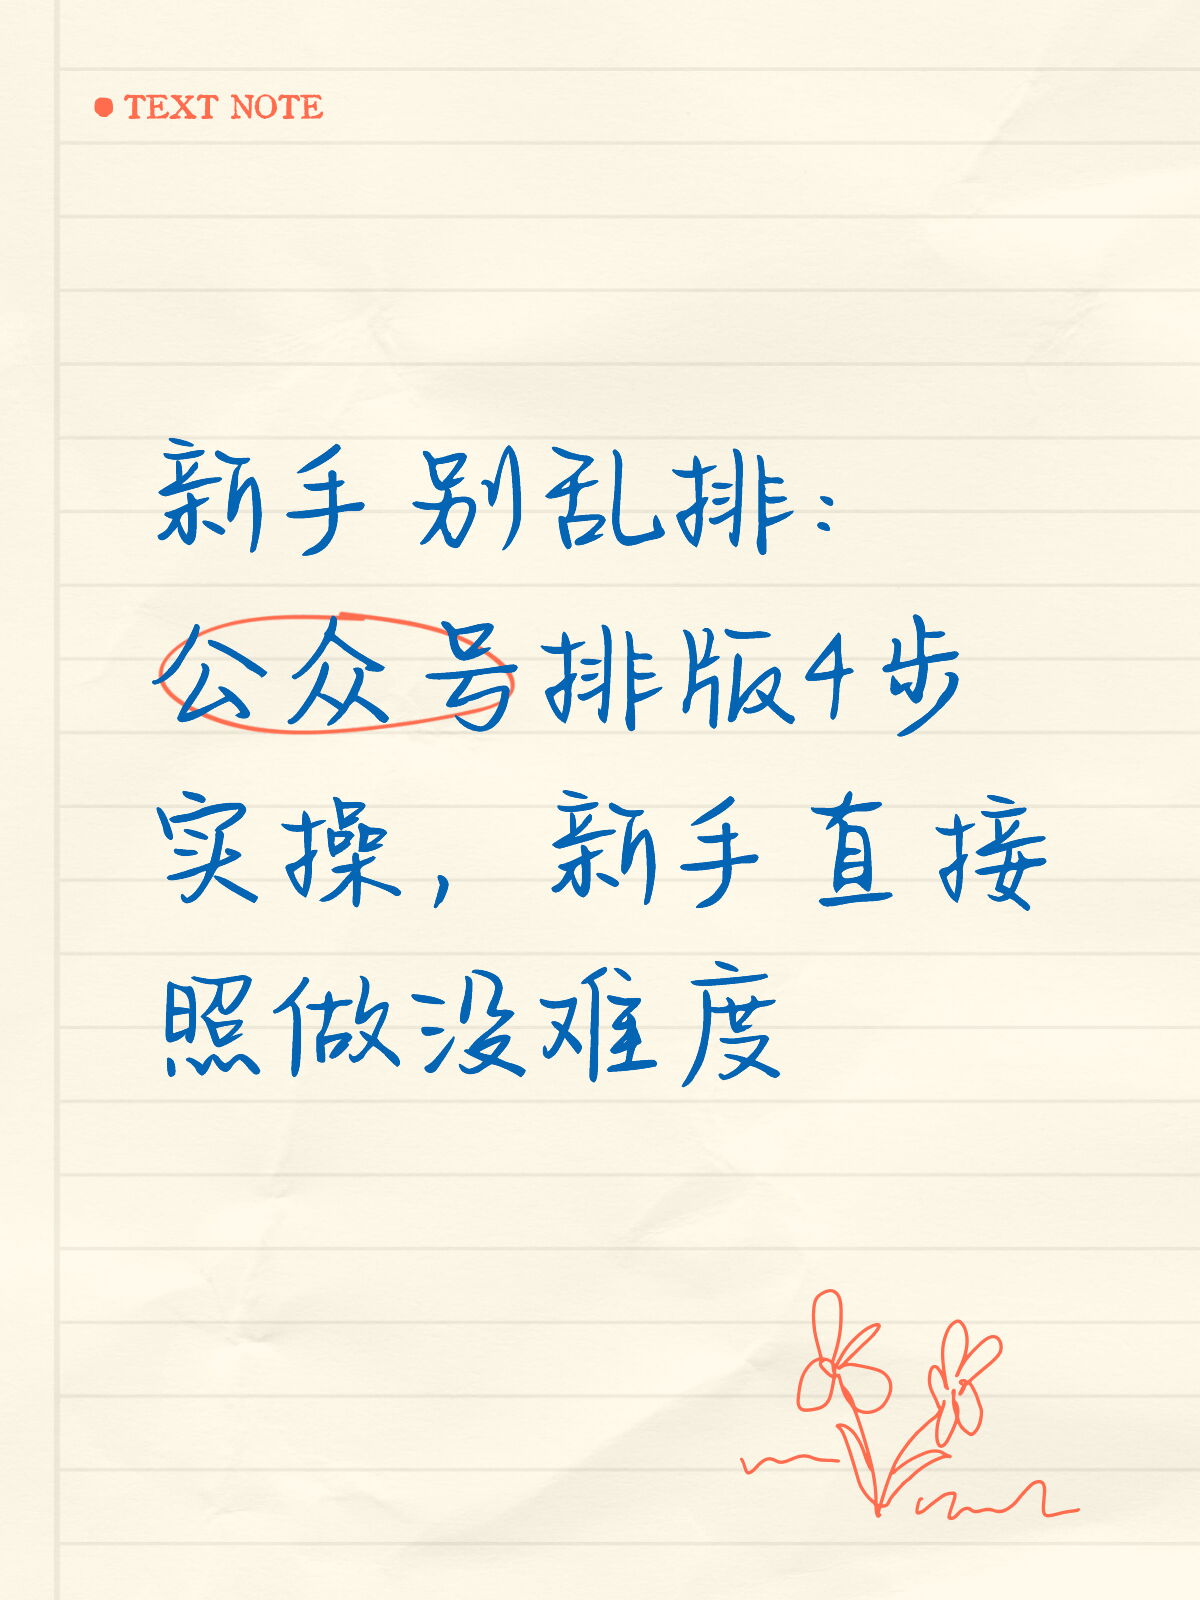 TEXT NOTE
新手别乱排：
公众号排版4步
实操，新手直接
照做没难度